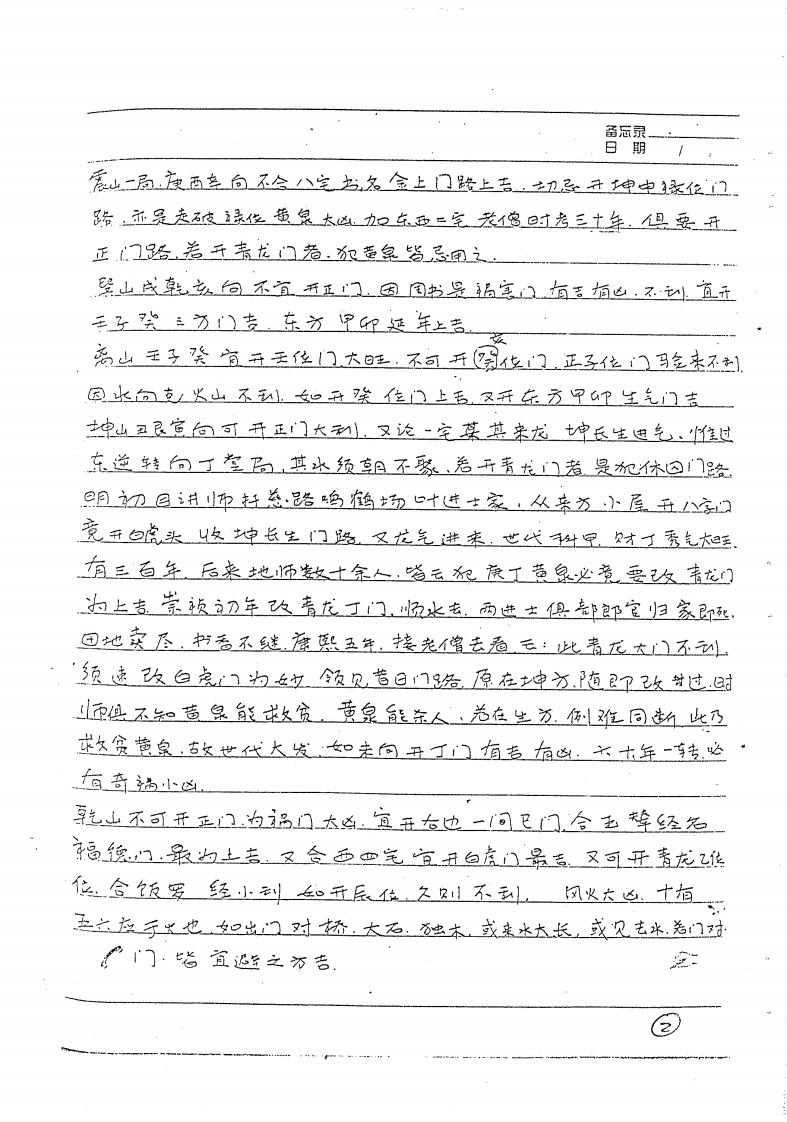 备忘录
日 期 /
震山一局.庚酉辛向不合八宅书,名金上门路上吉.切忌开坤申禄位门
路.亦是走破禄位黄泉大凶.加东西二宅.老僧时考三十年.但要开
正门路,若开青龙门者.犯黄泉皆忌用之.
巽山戌乾亥向不宜开正门.因图书是祸害门.有吉有凶.不利.宜开
壬子癸三方门吉.东方甲卯延年上吉.
离山壬子癸宜开壬位门大旺.不可开癸位门.正子位门马全来不利
因水向克火山不利.如开癸位门上吉.又开东方甲卯生气门吉
坤山丑艮寅向可开正门大利.又论一宅某其来龙 坤长生进气.惟过
东逆转向丁堂局,其水须朝不聚.若开青龙门者是犯休囚门路.
明初目讲师扦慈路鸣鹤场叶进士家,从来方小屋开八字门
竟开白虎头 收坤长生门路.又龙气进来.世代科甲.财丁秀气大旺.
有三百年.后来地师数十余人.皆云犯庚丁黄泉必竟要改青龙门
为上吉.崇祯初年改青龙丁门,顺水去.两进士俱部郎官归家即死.
田地卖尽.书香不继.康熙五年.接老僧去看云:此青龙大门不利.
须速改白虎门为妙.领见昔日门路.原在坤方.随即改过.时
师俱不知黄泉能救贫.黄泉能杀人.若在生方.例难同断.此乃
救贫黄泉.故世代大发.如来向开丁门有吉有凶.六十年一转.必
有奇祸小凶.
乾山不可开正门.为祸门大凶.宜开右边一间巳门,合玉辇经名
福德门.最为上吉.又合西四宅宜开白虎门最吉.又可开青龙乙位
位.合饭罗 经小利 如开辰位.久则不利. 风火大凶.十有
五六应于火也.如出门对桥.大石.独木.或来水大长,或见去水.若门对
门.皆宜避之方吉.
②